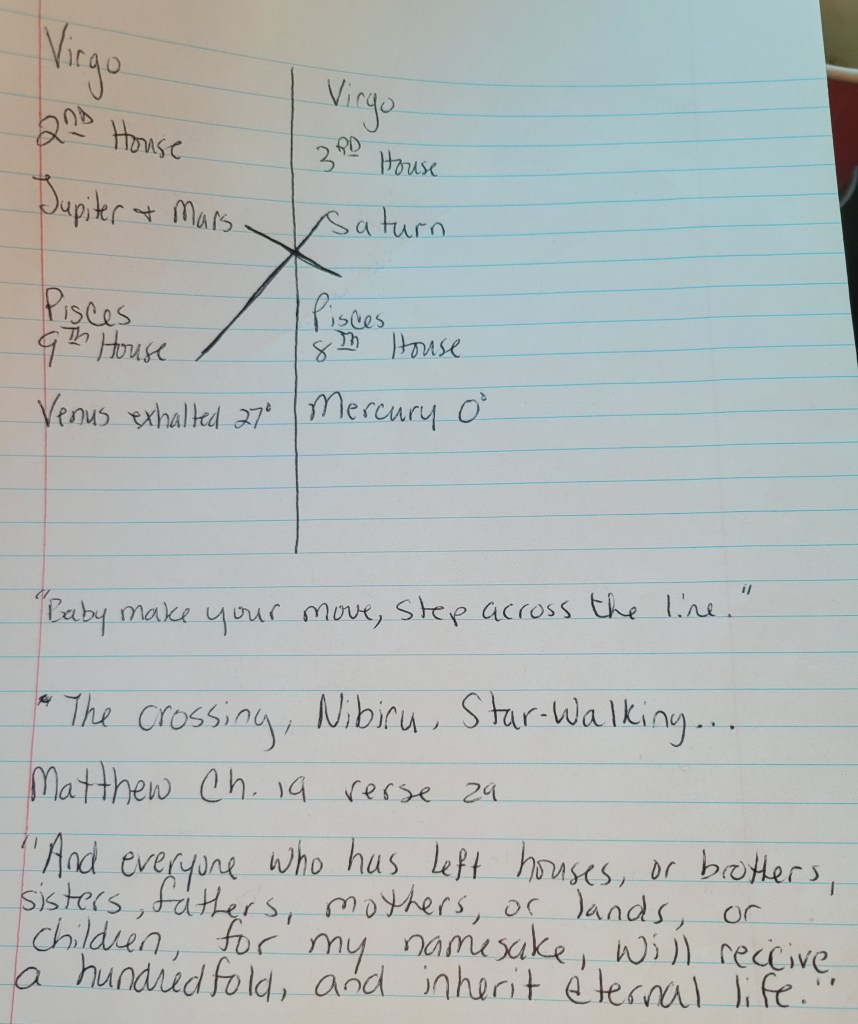 Virgo
2ND House
Jupiter + Mars
Pisces
9Th House
Venus exhalted 27°
Virgo
3RD House
Saturn
Pisces
8Th House
Mercury 0°
"Baby make your move, Step across the line."
* The crossing, Nibiru, Star-Walking...
Matthew Ch. 19 verse 29
"And everyone who has left houses, or brothers,
sisters, fathers, mothers, or lands, or
children, for my namesake, will receive
a hundredfold, and inherit eternal life."